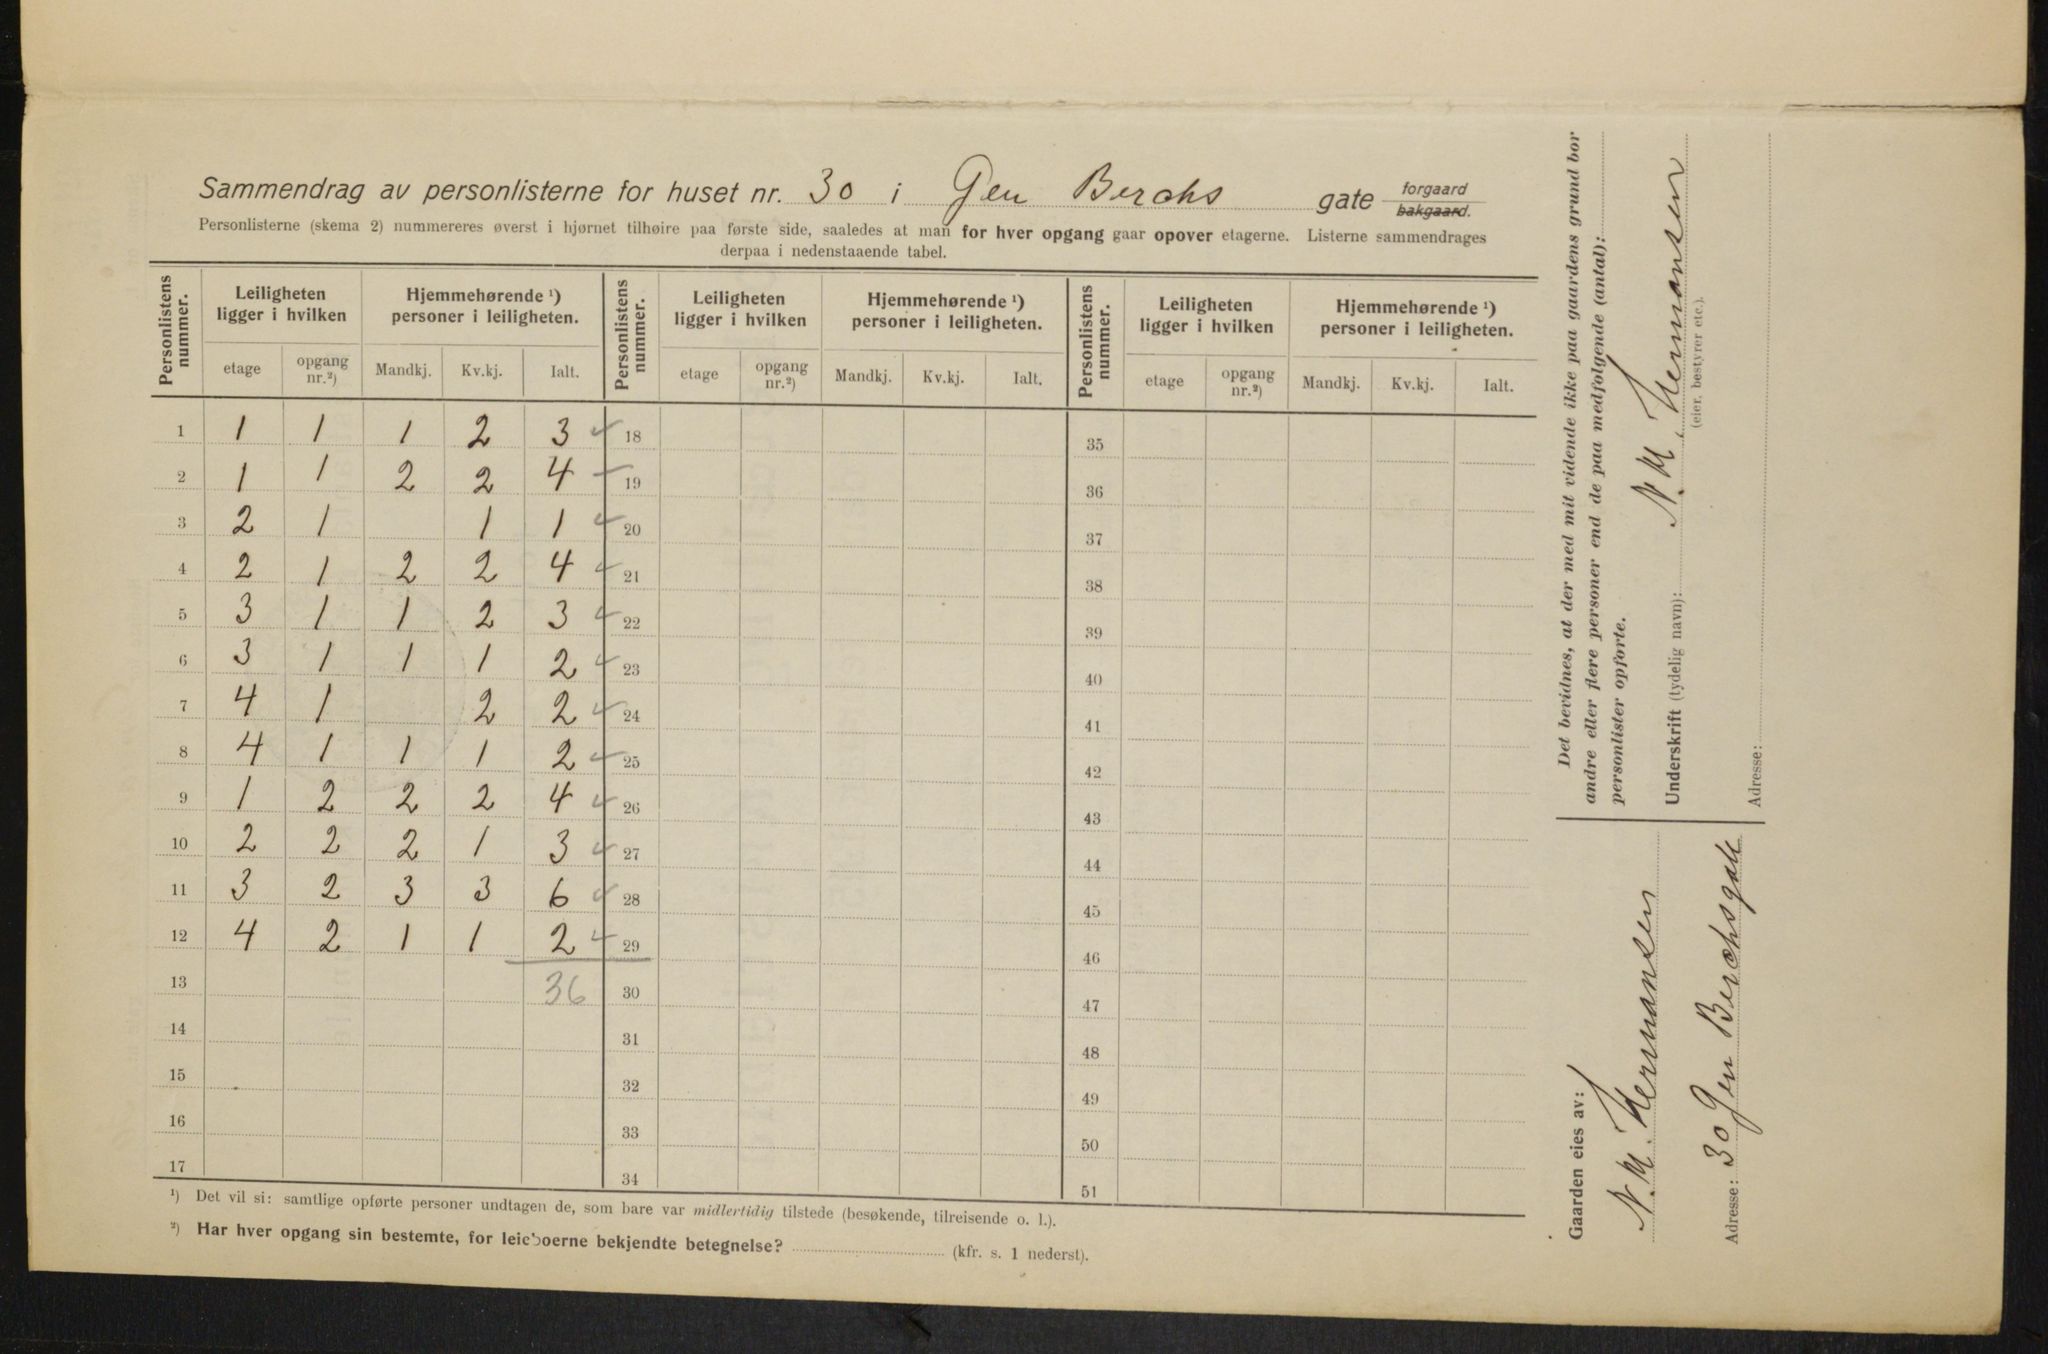 Sammendrag av personlisterne for huset nr. 30 i Gen Berchs gate forgaard bakgaard.
Personlisterne (skema 2) nummereres øverst i hjørnet tilhøire paa første side, saaledes at man for hver opgang gaar opover etagerne. Listerne sammendrages
derpaa i nedenstaaende tabel.
Personlistens nummer. Leiligheten ligger i hvilken Hjemmehørende ¹) personer i leiligheten. Personlistens nummer. Leiligheten ligger i hvilken Hjemmehørende ¹) personer i leiligheten. Personlistens nummer. Leiligheten ligger i hvilken Hjemmehørende ¹) personer i leiligheten.
etage opgang nr.²) Mandkj. Kv.kj. Ialt. etage opgang nr.²) Mandkj. Kv.kj. Ialt. etage opgang nr.²) Mandkj. Kv.kj. Ialt.
1 1 1 1 2 3 18 35
2 1 1 2 2 4 19 36
3 2 1 1 1 20 37
4 2 1 2 2 4 21 38
5 3 1 1 2 3 22 39
6 3 1 1 1 2 23 40
7 4 1 2 2 24 41
8 4 1 1 1 2 25 42
9 1 2 2 2 4 26 43
10 2 2 2 1 3 27 44
11 3 2 3 3 6 28 45
12 4 2 1 1 2 29 46
13 36 30 47
14 31 48
15 32 49
16 33 50
17 34 51
¹) Det vil si: samtlige opførte personer undtagen de, som bare var midlertidig tilstede (besøkende, tilreisende o. l.).
²) Har hver opgang sin bestemte, for leieboerne bekjendte betegnelse? (kfr. s. 1 nederst).
Det bevidnes, at der med mit vidende ikke paa gaardens grund bor
andre eller flere personer end de paa medfolgende (antal):
personlister opforte.
Underskrift (tydelig navn): N. M. Hermansen
(eier, bestyrer etc.).
Adresse:
Gaarden eies av:
N. M. Hermansen
Adresse: 30 Gen Berchsgate